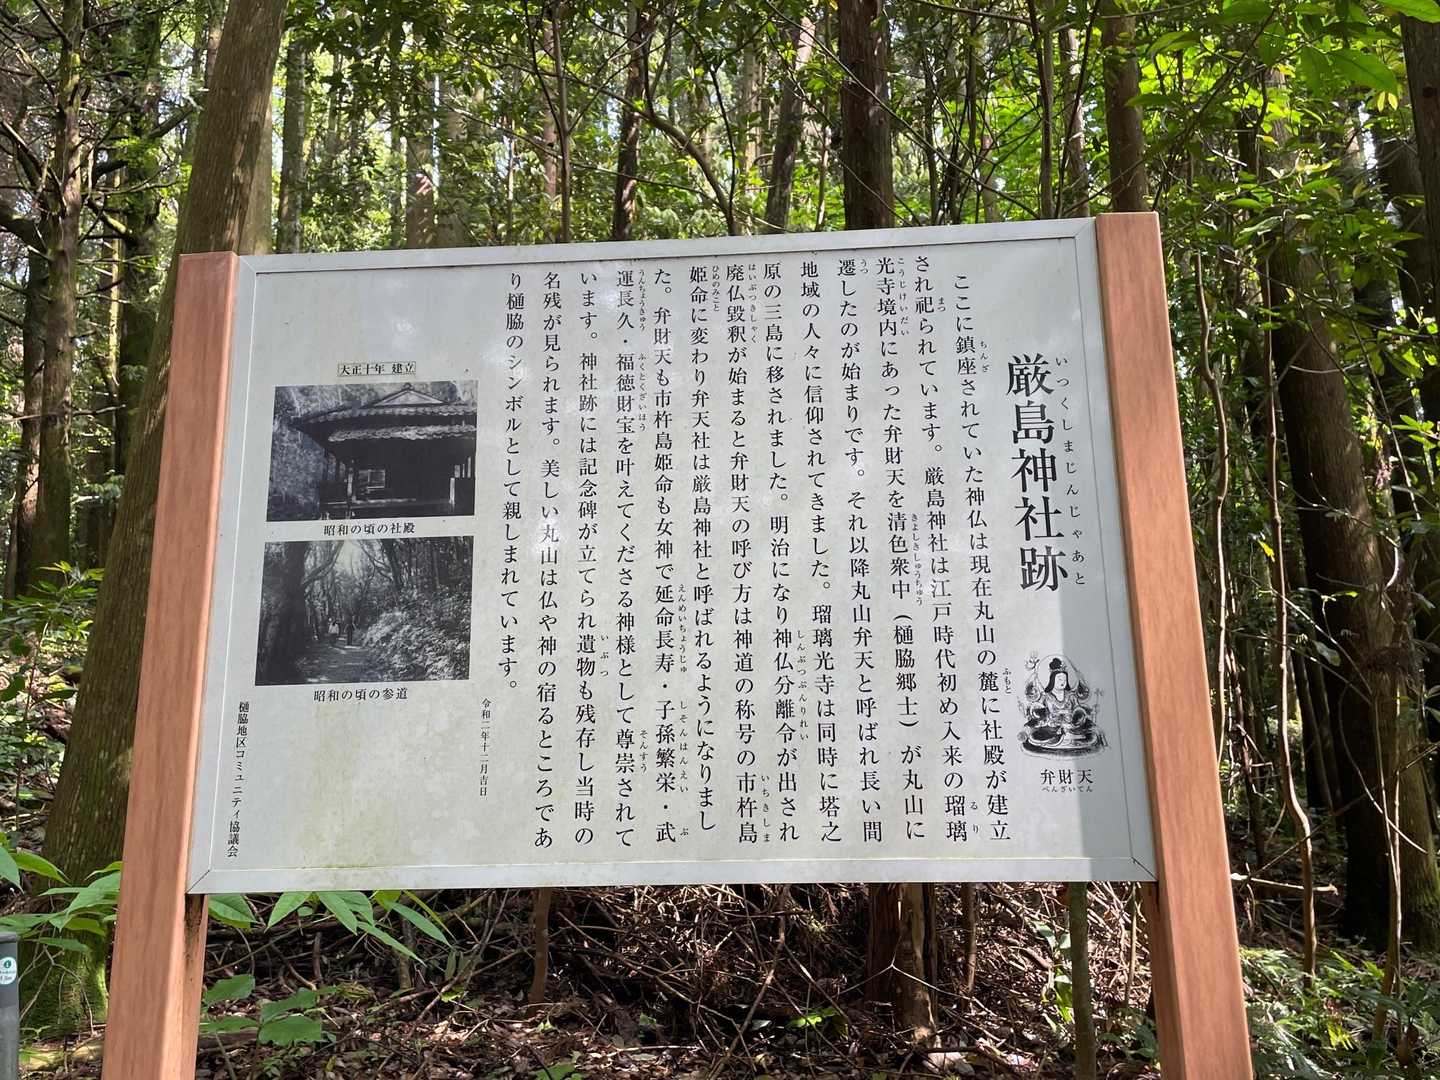 厳島神社跡
いつくしまじんじゃあと
ここに鎮座されていた神仏は現在丸山の麓に社殿が建立
され祀られています。厳島神社は江戸時代初め入来の瑠璃
光寺境内にあった弁財天を清色衆中（樋脇郷士）が丸山に
遷したのが始まりです。それ以降丸山弁天と呼ばれ長い間
地域の人々に信仰されてきました。瑠璃光寺は同時に塔之
原の三島に移されました。明治になり神仏分離令が出され
廃仏毀釈が始まると弁財天の呼び方は神道の称号の市杵島
姫命に変わり弁天社は厳島神社と呼ばれるようになりまし
た。弁財天も市杵島姫命も女神で延命長寿・子孫繁栄・武
運長久・福徳財宝を叶えてくださる神様として尊崇されて
います。神社跡には記念碑が立てられ遺物も残存し当時の
名残が見られます。美しい丸山は仏や神の宿るところであ
り樋脇のシンボルとして親しまれています。
令和二年十二月吉日
弁財天
べんざいてん
大正十年 建立
昭和の頃の社殿
昭和の頃の参道
樋脇地区コミュニティ協議会